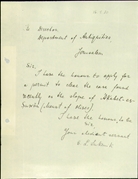 To Director
Department of Antiquities
Jerusalem
Sir,
I have the honour to apply for
a permit to clear the cave found
recently on the slope of
(Mount of Olives)
I have the honour to be
Sir
Your obedient servant